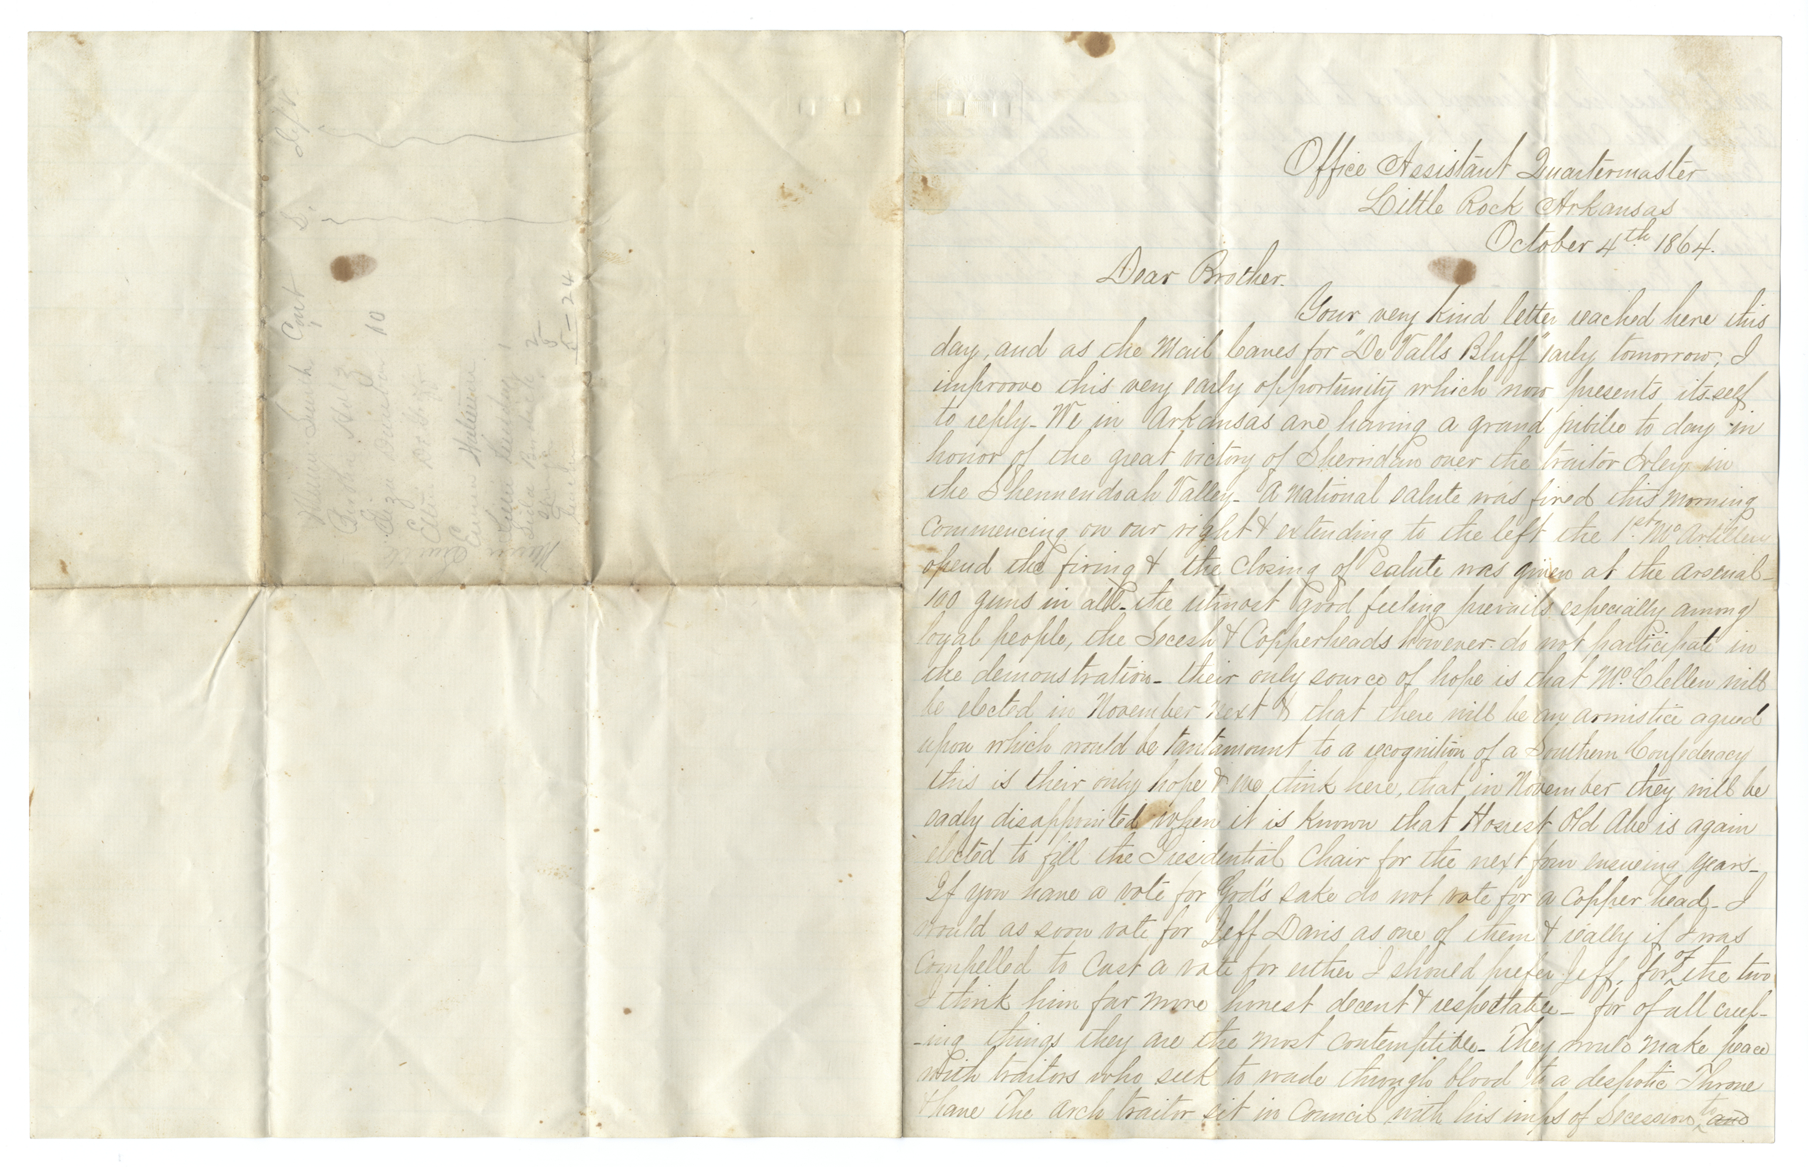 Office Assistant Quartermaster
Little Rock Arkansas
October 4th 1864.
Dear Brother.
Your very kind letter reached here this
day, and as the Mail leaves for "De Valls Bluff" early tomorrow, I
improove this very early opportunity which now presents itself
to reply_ We in Arkansas are having a grand jubilee to day in
honor of the great victory of Sherridan over the traitor Erley in
the Shennendoah Valley_ A National salute was fired this morning
commencing on our right & extending to the left the 1st Mo Artillery
opend the firing & the closing of salute was given at the arsenal_
100 guns in all_ the utmost good feeling prevails especially among
loyal people, the Secesh & Copperheads however do not participate in
the demonstration_ their only source of hope is that McClellen will
be elected in November next & that there will be an armistice agreed
upon which would be tantamount to a recognition of a Southern Confederacy
this is their only hope & we think here, that in November they will be
sadly disappointed when it is known that Honest Old Abe is again
elected to fill the Presidential Chair for the next four ensueing years_
If you have a vote for God's sake do not vote for a Copper head_ I
would as soon vote for Jeff Davis as one of them & really if I was
Compelled to Cast a vote for either I should prefer Jeff, for of the two
I think him far more honest decent & respectable_ for of all creep-
-ing things they are the most contemptible_ They would make peace
with traitors who seek to wade through blood to a despotic Throne
& have The arch traitor sit in Council with his imps of Secession to and
Smith Cort
Bertha No 3
Eliza 10
Etta
Emma
1
2
5
24